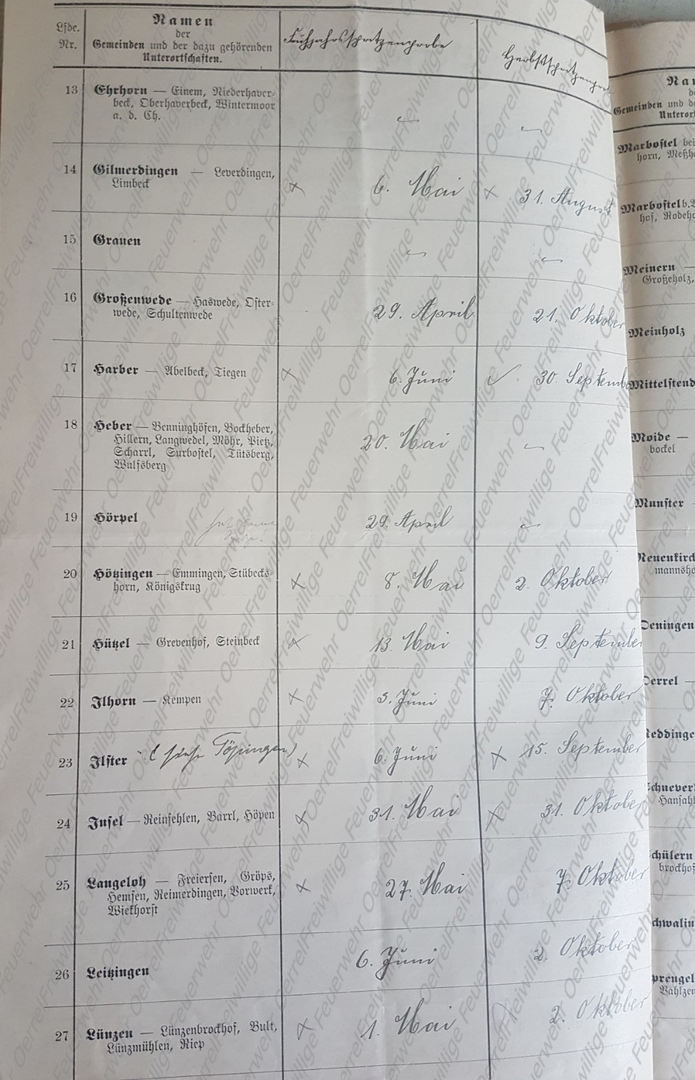 Lfde. Nr.
Namen
der
Gemeinden und der dazu gehörenden
Unterortschaften.
Frühjahrsspritzenprobe
Herbstspritzenprobe
13 Ehrhorn — Einem, Niederhaver-
beck, Oberhaverbeck, Wintermoor
a. d. Ch.
14 Gilmerdingen — Leverdingen, × 6. Mai × 31. August
Limbeck
15 Grauen
16 Großenwede — Haswede, Oster- 29. April 21. Oktober
wede, Schultenwede
17 Harber — Abelbeck, Tiegen × 6. Juni ✓ 30. Septemb
18 Heber — Benninghöfen, Bockheber, 20. Mai
Hillern, Langwedel, Möhr, Pietz,
Scharrl, Surbostel, Tütsberg,
Wulfsberg
19 Hörpel 29. April
20 Hötzingen — Emmingen, Stübecks- × 8. Mai 2. Oktober
horn, Königskrug
21 Hützel — Grevenhof, Steinbeck × 13. Mai 9. September
22 Ilhorn — Kempen × 3. Juni 7. Oktober
23 Ilster (siehe Töpingen) × 6. Juni × 15. September
24 Insel — Reinsehlen, Barrl, Höpen × 31. Mai × 31. Oktober
25 Langeloh — Freiersen, Gröps, × 27. Mai 7. Oktober
Hemsen, Reimerdingen, Vorwerk,
Wiekhorst
26 Leitzingen 6. Juni 2. Oktober
27 Lünzen — Lünzenbrockhof, Bult, × 1. Mai 2. Oktober
Lünzmühlen, Riep
Na
de
Gemeinden und d
Unterort
Marbostel bei
horn, Meßh
Marbostel b.
hof, Rodeh
Meinern —
Großeholz,
Meinholz
Mittelstend
Moide —
bockel
Munster
Neuenkirch
mannsho
Deningen
Oerrel —
Reddinge
Schnever
Hansahl
Schülern
brockhof
Schwalin
Sprengel
Vahlzen
Freiwillige Feuerwehr Oerrel